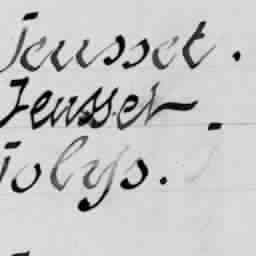 Jeusset.
Jeusset.
Jolys.